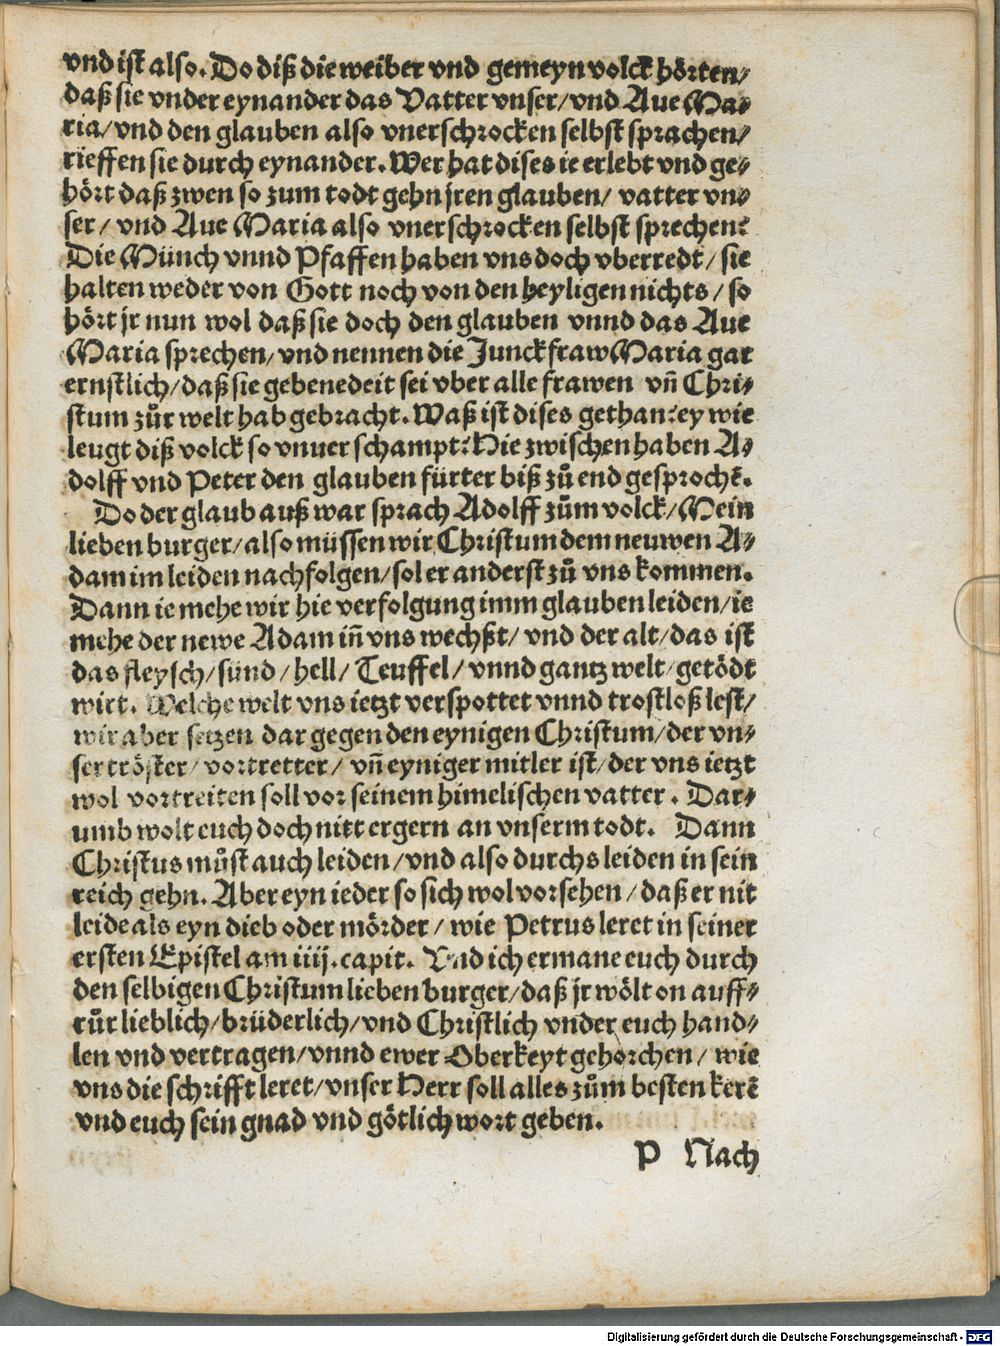 vnd ist also. Do diß die weiber vnd gemeyn volck hörten/
daß sie vnder eynander das Vatter vnser/ vnd Aue Ma⸗
ria/ vnd den glauben also vnerschrocken selbst sprachen/
rieffen sie durch eynander. Wer hat dises ie erlebt vnd ge⸗
hört daß zwen so zum todt gehn jren glauben/ vatter vn⸗
ser/ vnd Aue Maria also vnerschrocken selbst sprechen?
Die Münch vnnd Pfaffen haben vns doch vberredt/ sie
halten weder von Gott noch von den heyligen nichts/ so
hört jr nun wol daß sie doch den glauben vnnd das Aue
Maria sprechen/ vnd nennen die Junckfraw Maria gar
ernstlich/ daß sie gebenedeit sei vber alle frawen vñ Chri⸗
stum zůr welt hab gebracht. Waß ist dises gethan? ey wie
leugt diß volck so vnuerschampt? Hie zwischen haben A⸗
dolff vnd Peter den glauben fürter biß zů end gesprochē.
Do der glaub auß war sprach Adolff zům volck/ Mein
lieben burger/ also müssen wir Christum dem neuwen A⸗
dam im leiden nachfolgen/ sol er anderst zů vns kommen.
Dann ie mehe wir hie verfolgung imm glauben leiden/ ie
mehe der newe Adam iñ vns wechßt/ vnd der alt/ das ist
das fleysch/ sünd/ hell/ Teuffel/ vnnd gantz welt/ getödt
wirt. Welche welt vns ietzt verspottet vnnd trostloß lest/
wir aber setzen dar gegen den eynigen Christum/ der vn⸗
ser tröster/ vortretter/ vñ eyniger mitler ist/ der vns ietzt
wol vortretten soll vor seinem himelischen vatter. Dar⸗
umb wolt euch doch nitt ergern an vnserm todt. Dann
Christus můst auch leiden/ vnd also durchs leiden in sein
reich gehn. Aber eyn ieder so sich wol vorsehen/ daß er nit
leide als eyn dieb oder mörder/ wie Petrus leret in seiner
ersten Epistel am iiij. capit. Vnd ich ermane euch durch
den selbigen Christum lieben burger/ daß jr wölt on auff⸗
růr lieblich/ brüderlich/ vnd Christlich vnder euch hand⸗
len vnd vertragen/ vnnd ewer Oberkeyt gehorchen/ wie
vns die schrifft leret/ vnser Herr soll alles zům besten kerē
vnd euch sein gnad vnd götlich wort geben.
P Nach
Digitalisierung gefördert durch die Deutsche Forschungsgemeinschaft - DFG